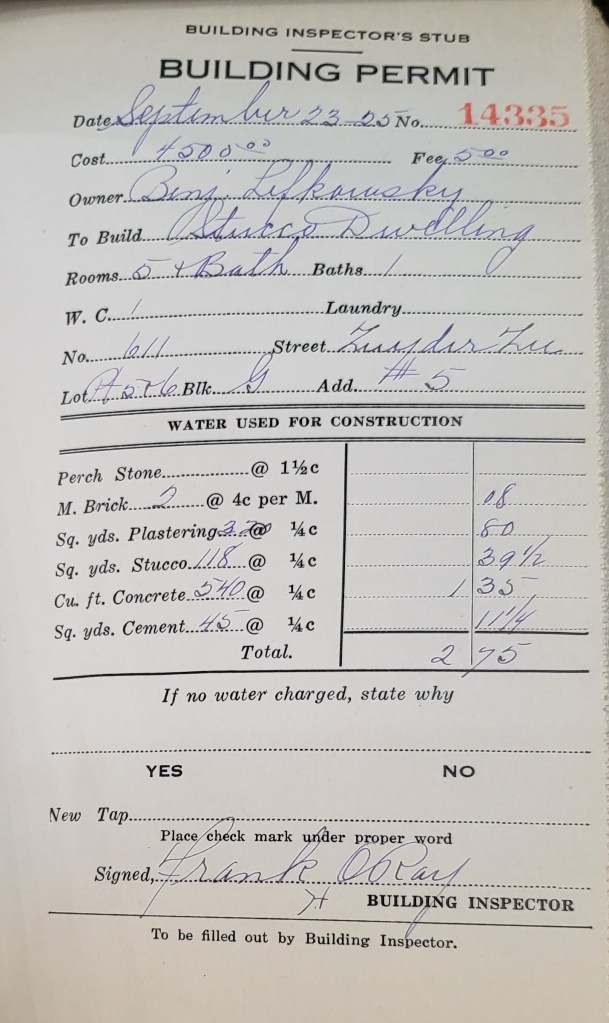 BUILDING INSPECTOR'S STUB
BUILDING PERMIT
Date September 23-25 No. 14335
Cost 4500 00 Fee 5 00
Owner Benj. Lefkowsky
To Build Stucco Dwelling
Rooms 5 + Bath Baths 1
W. C. 1 Laundry
No. 611 Street Zuyder Zee
Lot 5+6 Blk. G Add. #5
WATER USED FOR CONSTRUCTION
Perch Stone @ 1½c
M. Brick 2 @ 4c per M. 08
Sq. yds. Plastering @ ¼c 80
Sq. yds. Stucco 118 @ ¼c 39 ½
Cu. ft. Concrete 540 @ ¼c 1 35
Sq. yds. Cement 45 @ ¼c 11 ¼
Total. 2 75
If no water charged, state why
YES NO
New Tap
Place check mark under proper word
Signed, Frank O Ray
BUILDING INSPECTOR
To be filled out by Building Inspector.